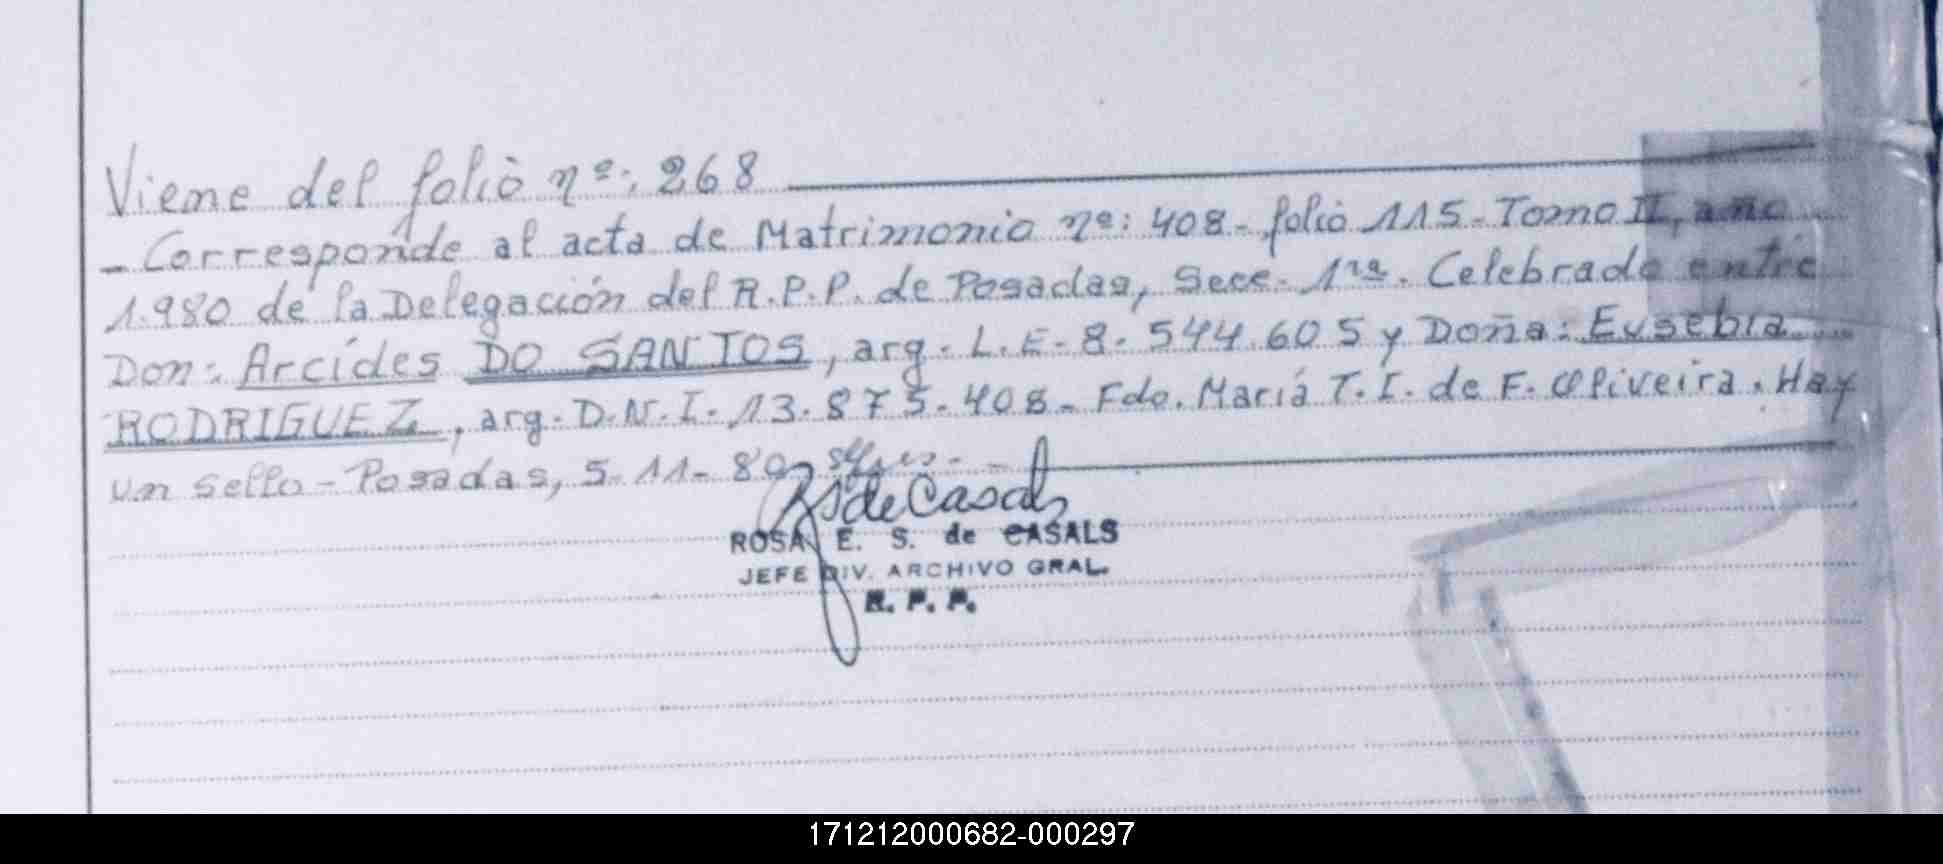 Viene del folio nº: 268
- Corresponde al acta de Matrimonio nº: 408 - folio 115 - Tomo II, año
1.980 de la Delegación del R.P.P. de Posadas, Secc. 1ra. Celebrado entre
Don: Arcídes DO SANTOS, arg. L.E - 8.544.605 y Doña: Eusebia
RODRIGUEZ, arg. D.N.I. 13.875.408 - Fdo. María T. I. de F. Oliveira. Hay
un sello - Posadas, 5-11-80
RSdeCasals
ROSA E. S. de CASALS
JEFE DIV. ARCHIVO GRAL.
R. P. P.
171212000682-000297